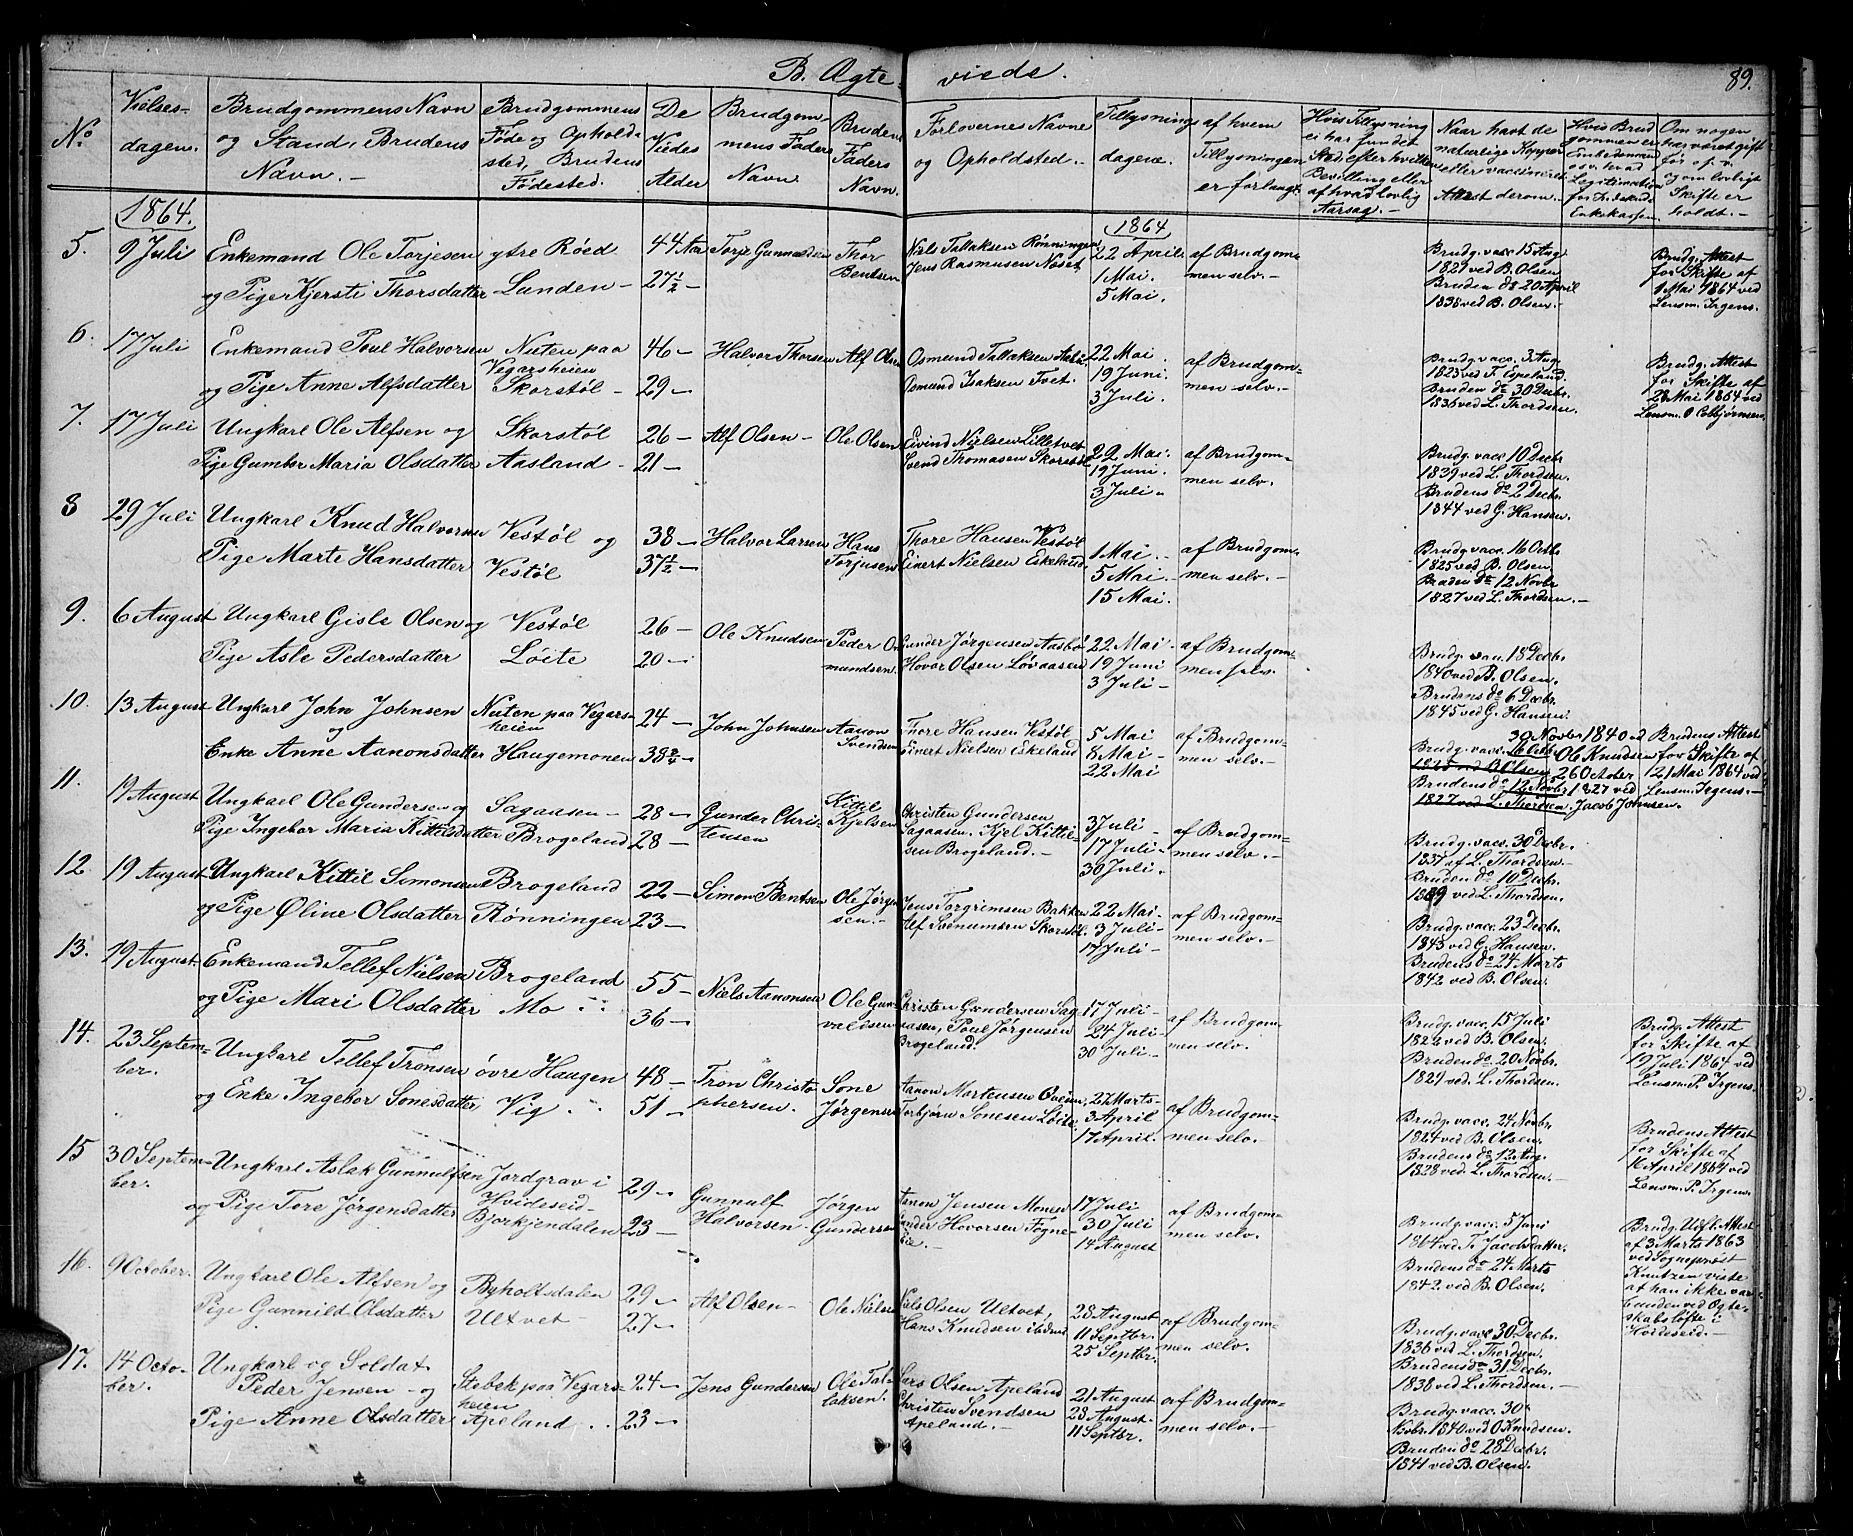 B. Ægteviede.
89.
No.
Vielses-dagen.
Brudgommens Navn og Stand, Brudens Navn.-
Brudgommens Føde og Opholdssted, Brudens Fødested.
De Viedes Alder
Brudgommens Faders Navn
Brudens Faders Navn.
Forlovernes Navne og Opholdsted.-
Tillysnings dagene.
af hvem Tillysningen er forlangt.
Hvis Tillysning ei har fundet Sted, efter hvilken Bevilling eller af hvad lovlig Aarsag.-
Naar havt de naturlige Kopper eller vaccineret Attest derom.-
Om nogen har været gift før o.s.v. og om lovligt Skifte er holdt.-
1864.
1864
5. 9 Juli
Enkemand Ole Torjesen
og Pige Kjersti Thorsdatter
ytre Røed
Lunden-
44 Aar
27½-
Torje Gunnaldsen
Thor Bentsen
Niels Tallaksen Rønningen
Jens Rasmusen Næset
22 April.
1 Mai.
5 Mai.
af Brudgommen selv.-
Brudg. vacc. 15 Aug
1821 ved B. Olsen
Bruden do 20 April
1838 ved B. Olsen.
Brudg. Attest
for Skifte af
1 Mai 1864 ved
Lensm. Irgens.
6. 17 Juli
Enkemand Poul Halvorsen
og Pige Anne Alfsdatter
Nuten paa
Vegarsheien
Skorstøl-
46-
29-
Halvor Thorsen
Alf Olsen
Osmund Tallaksen
Osmund Isaksen Tvet.
22 Mai
19 Juni.
3 Juli.
af Brudgommen selv.
Brudg. vacc. 3 Aug
1823 ved T. Espeland.
Bruden do 30 Decbr.
1836 ved L. Thordsen.
Brudg. Attest
for Skifte af
28 Mai 1864 ved
Lensm. O Esbjørnsen
7. 17 Juli
Ungkarl Ole Alfsen og
Pige Gunbor Maria Olsdatter
Skorstøl
Aasland-
26-
21-
Alf Olsen-
Ole Olsen
Eivind Nielsen Lilletvet
Svend Thomasen Skorstøl
22 Mai.
19 Juni.
3 Juli-
af Brudgommen selv.
Brudg. vacc. 10 Decbr
1839 ved L. Thordsen
Brudens do 2 Decbr.
1844 ved G. Hansen.
8 29 Juli
Ungkarl Knud Halvorsen
Pige Marte Hansdatter
Vestøl og
Vestøl
38-
37½-
Halvor Larsen
Hans Torjusen
Thore Hansen Vestøl
Einert Nielsen Eskeland
1 Mai.
5 Mai.
15 Mai.
af Brudgommen selv.-
Brudg. vacc. 16 Octb.
1825 ved B. Olsen
Bruden do 12 Novbr
1827 ved L. Thordsen.-
9. 6 August
Ungkarl Gisle Olsen og
Pige Asle Pedersdatter
Vestøl
Løite
26-
20-
Ole Knudsen
Peder Osmundsen
Gunder Jørgensen Aasbø
Hovor Olsen Løvaasen
22 Mai-
19 Juni
3 Juli-
af Brudgommen selv.
Brudg. vacc. 18 Decbr
1840 ved B. Olsen.
Brudens do 6 Decbr.
1845 ved G. Hansen.
10. 13 August
Ungkarl John Johnsen
og
Enke Anne Aanonsdatter
Nuten paa Vegarsheien
Haugemonen
24-
John Johnsen
Aanon Svendsen
Thore Hansen Vestøl
Einert Nielsen Eskeland
5 Mai
8 Mai-
22 Mai
af Brudgommen selv.
30 Novbr 1840 ved
Brudg. vacc. 16 Octb. Ole Knudsen
1825 ved B. Olsen 26 October
Brudens do 12 Novbr 1827 ved
1827 ved L. Thordsen. Jacob Johnsen.
Brudens Attest
for Skifte af
21 Mai 1864 ved
Lensm. Irgens.-
11. 19 August
Ungkarl Ole Gundersen og
Pige Ingebor Maria Kittilsdatter
Sagaasen-
Brogeland
28-
28-
Gunder Christensen
Kittil Kjelsen
Christen Gundersen
Sagaasen. Kjel Kittilsen Brogeland.-
3 Juli-
17 Juli-
30 Juli.
af Brudgommen selv.-
Brudg. vacc. 30 Decbr.
1837 af L. Thordsen.-
Bruden do 10 Decbr.
1839 ved L. Thordsen.
12. 19 August
Ungkarl Kittil Simonsen
og Pige Øline Olsdatter
Brogeland
Rønningen
22-
23-
Simon Bentsen
Ole Jørgensen.-
Jens Torgrimsen Bakken
Alf Svenumsen Skorstøl.
22 Mai-
3 Juli-
17 Juli-
af Brudgommen selv.-
Brudg. vacc. 23 Decbr.
1843 ved G. Hansen.
Brudens do 24 Marts
1842 ved B. Olsen
13. 19 August.
Enkemand Tellef Nielsen
og Pige Mari Olsdatter
Brogeland
Mo
55-
36-
Niels Aanonsen
Ole Gunvaldsen
Christen Gundersen Sagaasen, Poul Jørgensen
Brogeland.
17 Juli-
24 Juli-
30 Juli-
af Brudgommen selv.
Brudg. vacc. 15 Juli
1822 ved B. Olsen.
Bruden do 20 Novbr.
1829 ved. L. Thordsen.
Brudg. Attest
for Skifte af
19 Juli 1864 ved
Lensm. P. Irgens.
14. 23 September.
Ungkarl Tellef Tronsen
og Enke Ingebor Sonesdatter
øvre Haugen
Vig
48-
51-
Tron Christophersen.
Sone Jørgensen
Aanon Mortensen
Torbjørn Sonesen Løite
27 Marts-
3 April
17 April.
af Brudgommen selv.-
Brudg. vacc. 24 Novbr.
1824 ved B. Olsen.
Brudens do 12 Aug.
1828 ved L. Thordsen.-
Brudens Attest
for Skifte af
16 April 1864 ved
Lensm. P. Irgens.
15 30 September.
Ungkarl Aslak Gunnulfsen
og Pige Tore Jørgensdatter
Jordgrav i
Hvideseid-
Bjorkjendalen
29-
23-
Gunnulf Halvorsen-
Jørgen Gundersen
Aanon Jensen Monen
Gunder Hovorsen
17 Juli
30 Juli
14 August
af Brudgommen selv.
Brudg. vacc. 5 Juni
1864 ved T. Jacobsdatter.
Brudens do 24 Marts
1842 ved B. Olsen.
Brudg. Udfl. Attest
af 3 Marts 1863
ved Sogneprest
Knutzen viste
at han ikke var
bunden ved Ægteskabsløfte i
Hvideseid.-
16. 9 October.
Ungkarl Ole Alfsen og
Pige Gunnild Olsdatter
Byholtsdalen
Ultvet-
29-
27-
Alf Olsen-
Ole Nielsen
Niels Olsen Ultvet,
Hans Knudsen ibidem
28 August
11 Septbr.
25 Septbr.
af Brudgommen selv.
Brudg. vacc. 30 Decbr.
1836 ved L. Thordsen.
Brudens do 31 Decbr.
1838 ved L. Thordsen.-
17. 14 October.
Ungkarl og Soldat
Peder Jensen - og
Pige Anne Olsdatter
Stebek paa Vegarsheien
Apeland
24-
23-
Jens Gundersen
Ole Tallaksen.
Lars Olsen Apeland
Christen Svendsen
Apeland.-
21 August
28 August-
11 Septbr.
af Brudgommen selv.-
Brudg. vacc. 30
Novbr. 1840 ved O Knudsen
Bruden do 28 Decbr.
1841 ved B. Olsen.